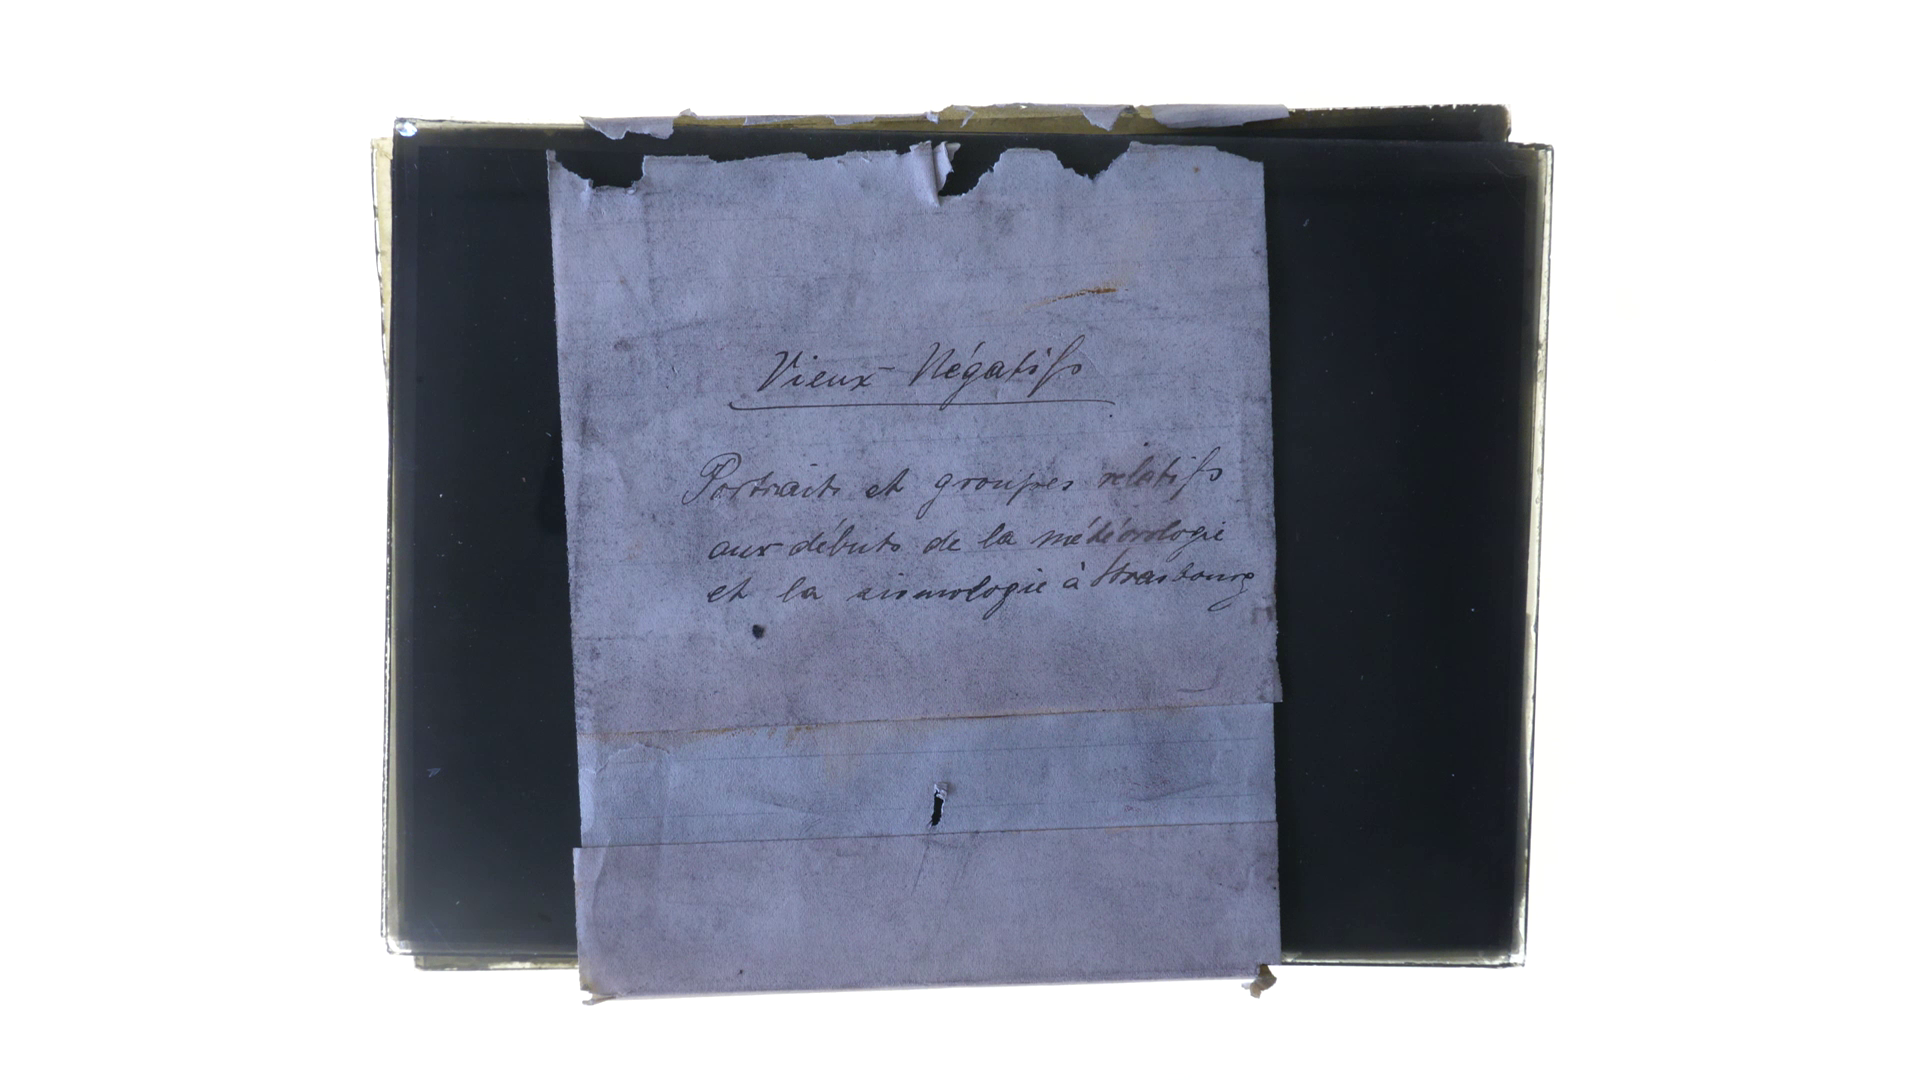 Vieux Négatifs
Portraits et groupes relatifs
aux débuts de la météorologie
et la sismologie à Strasbourg